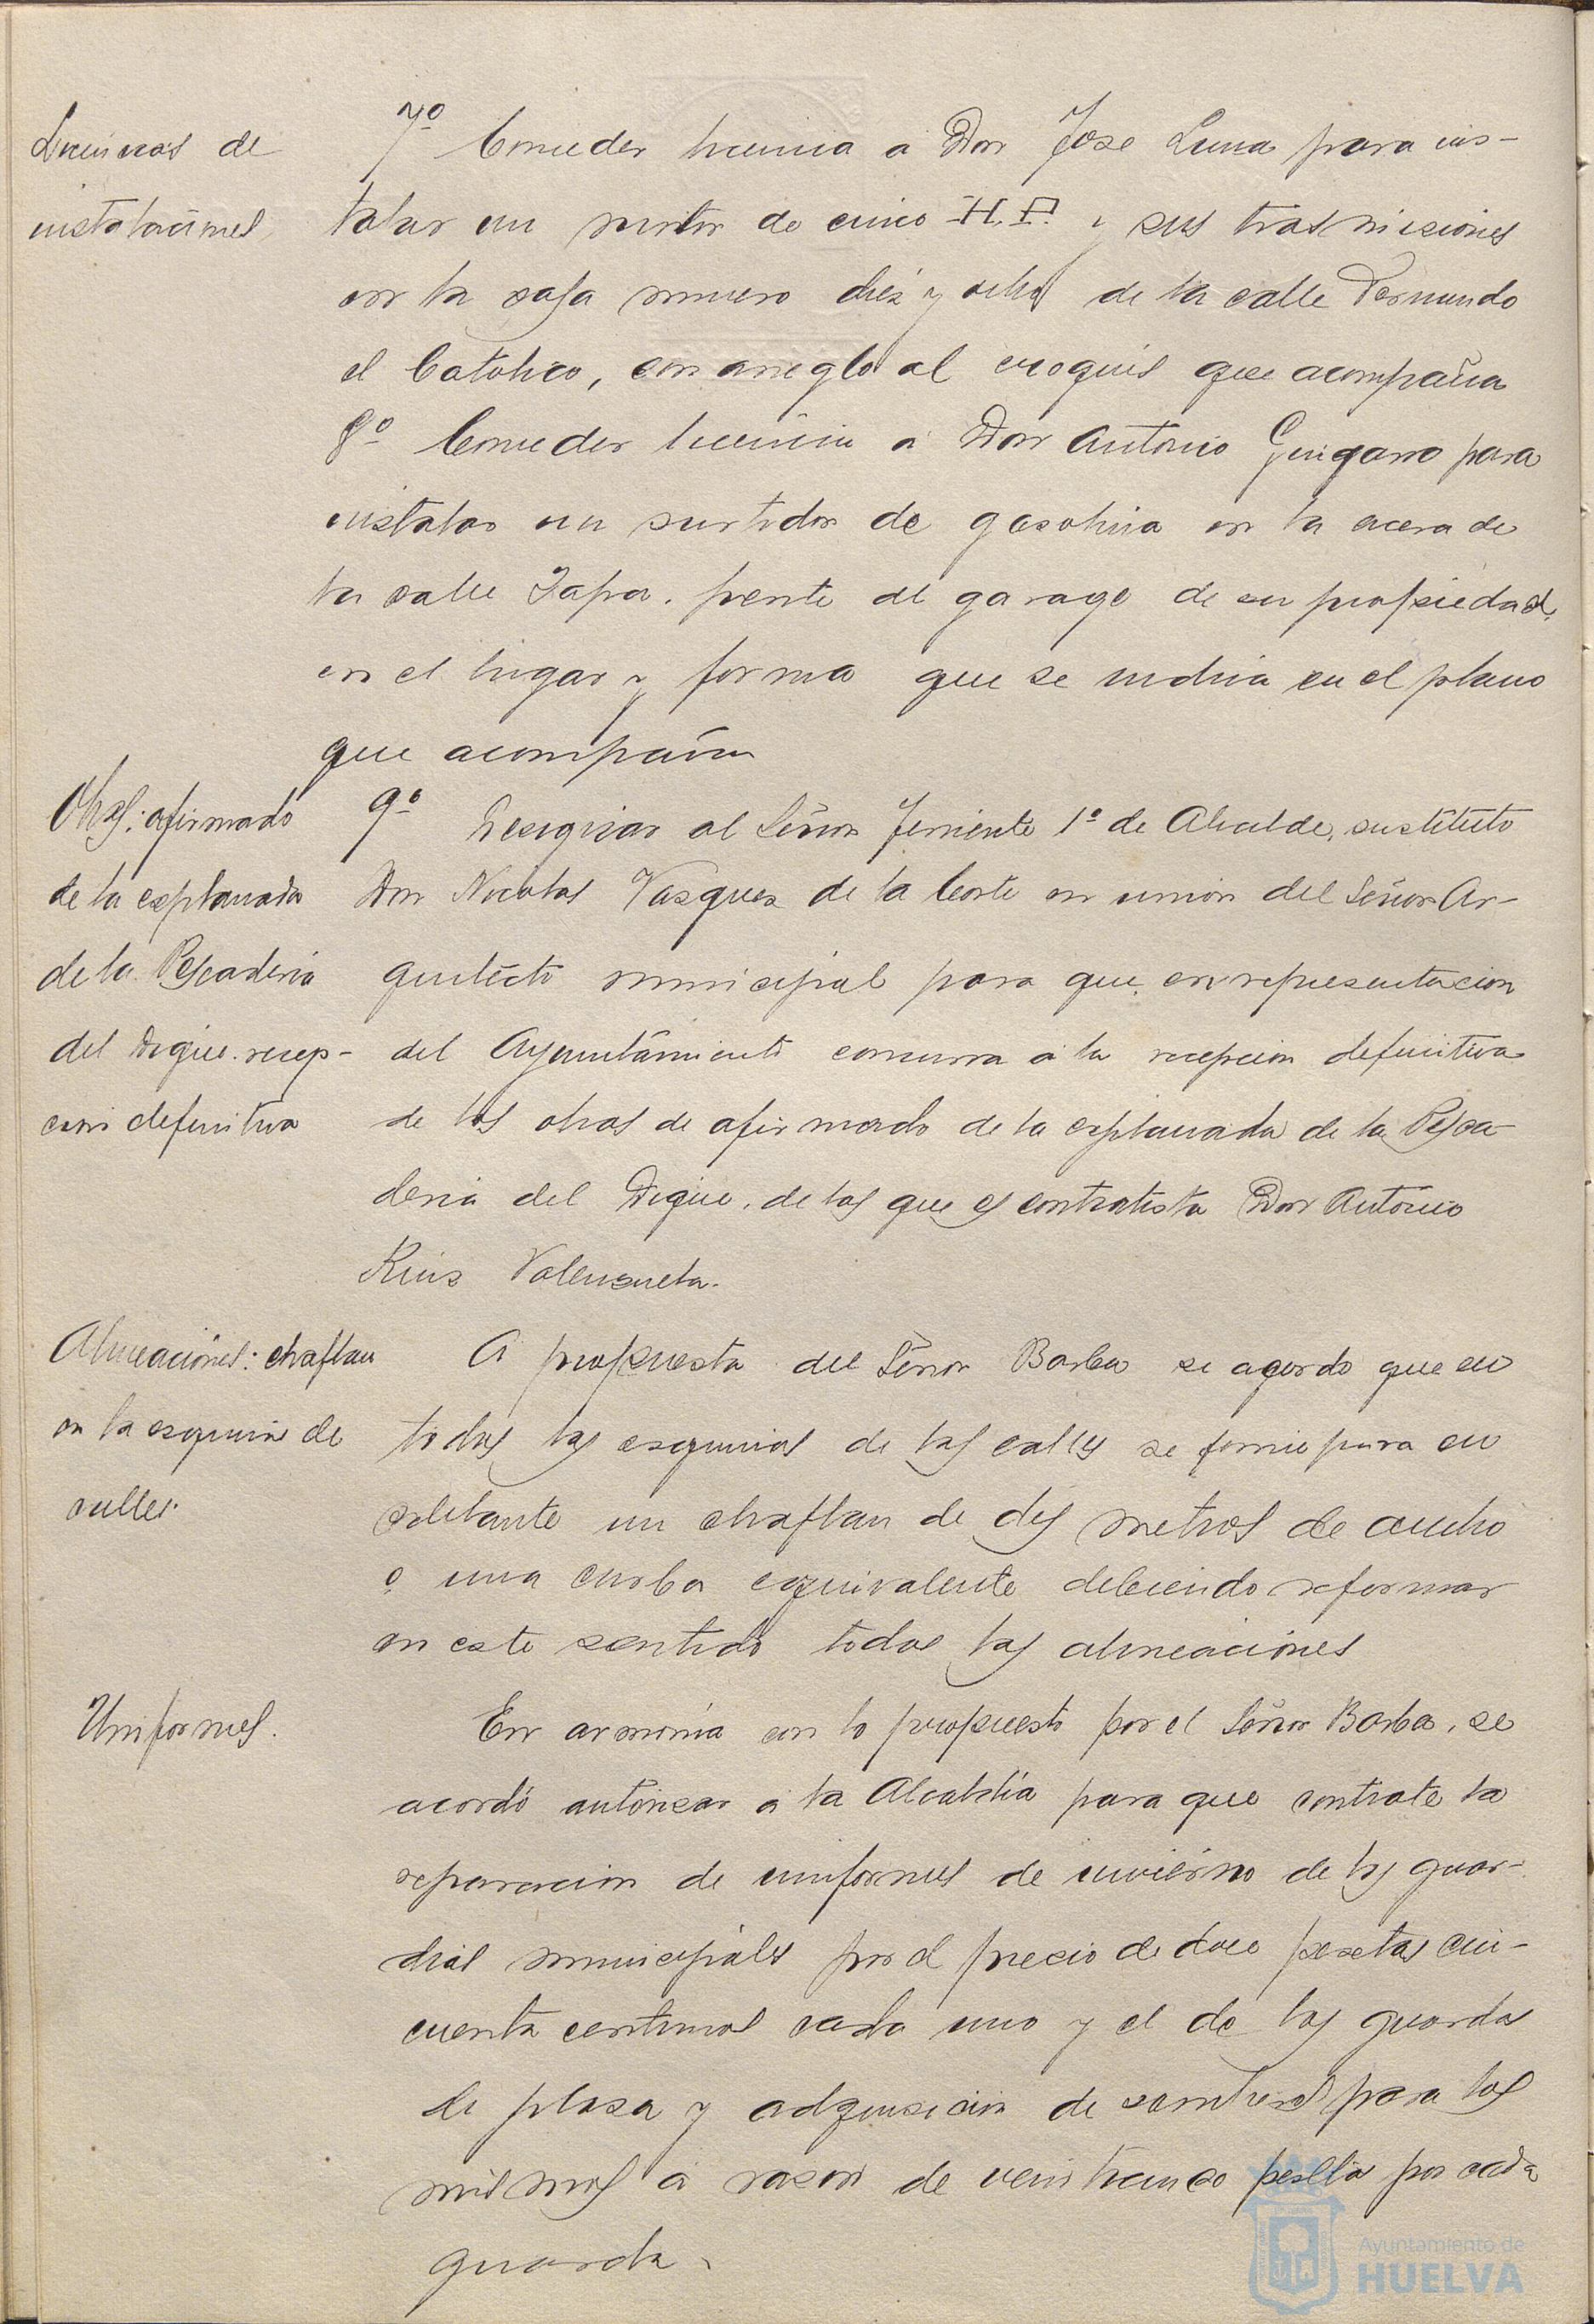 Licencias de
instalaciones
7º Conceder licencia a Don Jose Luna para ins-
talar un motor de cinco H.P. y sus trasmisiones
en la casa numero diez y ocho de la calle Fernando
el Catolico, con arreglo al croquis que acompaña
8º Conceder licencia a Don Antonio para
instalar un surtidor de gasolina en la acera de
la calle Zafra, frente al garage de su propiedad,
en el lugar y forma que se indica en el plano
que acompaña
Obras: afirmado
de la explanada
de la Pescaderia
del Dique. recep-
cion definitiva
9º Designar al Señor Teniente 1º de Alcalde, sustituto
Don Nicolas Vazquez de la Corte en union del Señor Ar-
quitecto municipal para que, en representacion
del Ayuntamiento concurra a la recepcion definitiva
de las obras de afirmado de la explanada de la Pesca-
deria del Dique, de las que es contratista Don Antonio
Ruiz Valenzuela.
Alineaciones: chaflan
en la esquina de
calles.
A propuesta del Señor Barba se acordo que en
todas las esquinas de las calles se forme para en
adelante un chaflan de dos metros de ancho
o una curba equivalente debiendo reformar
en este sentido todas las alineaciones
Uniformes.
En armonia con lo propuesto por el Señor Barba, se
acordó autorizar a la Alcaldía para que contrate la
reparacion de uniformes de invierno de los guar-
dias municipales por el precio de doce pesetas cin-
cuenta centimos cada uno y el de los guardas
de plaza y adquisicion de sombreros para los
mismos a razon de veinticinco pesetas por cada
guarda.
Ayuntamiento de
HUELVA